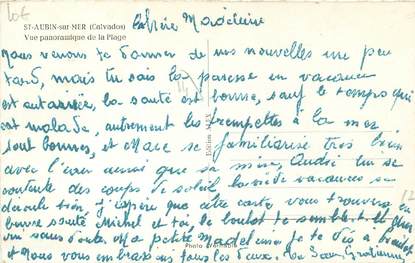 10€
ST-AUBIN-sur-MER (Calvados)
Vue panoramique de la Plage
Chère Madeleine
Nous venons te donner de nos nouvelles un peu
tard, mais tu sais la paresse en vacances
est autorisée, la santé est bonne, sauf le temps qui
est malade, autrement les trempettes à la mer
sont bonnes, et Marc se familiarise très bien
avec l'eau ainsi que sa mère, André lui se
contente des coups de soleil, les vacances se
J'espère que cette carte vous trouvera en
bonne santé Michel et toi, le boulot
sans doute. Ma petite Madeleine je te dis à bientôt
et nous vous embrassons tous les deux.
Edition
Photo
12